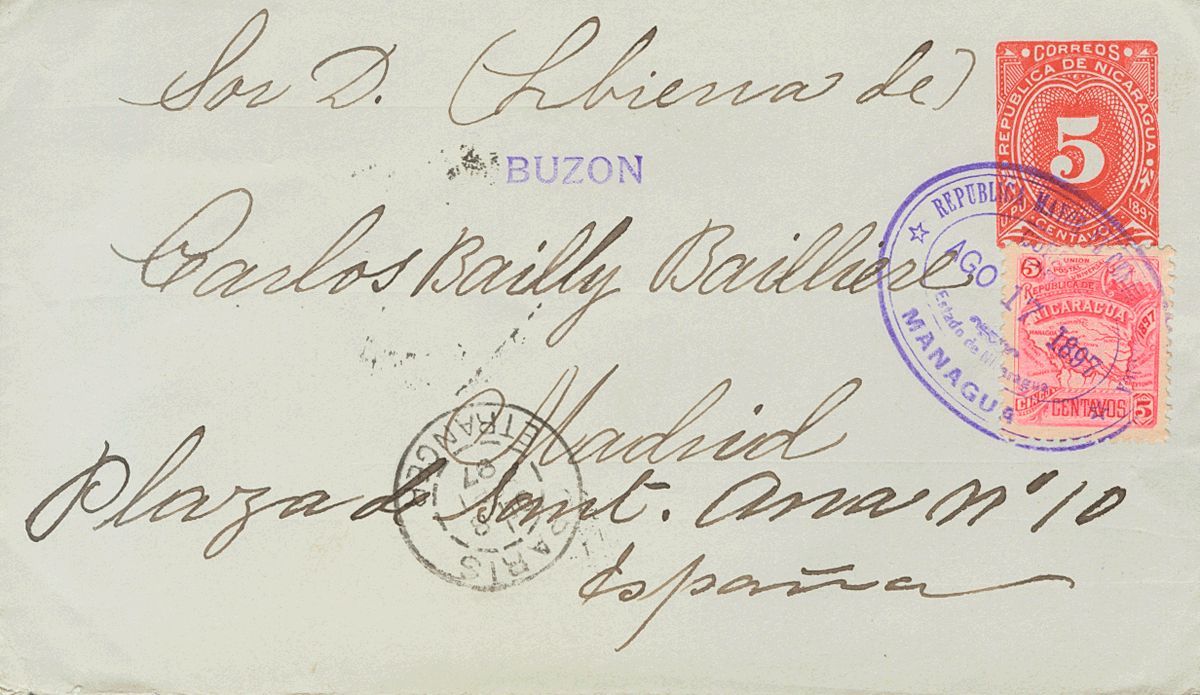 Sor D. (Lbieria de)
BUZON
Carlos Bailly Bailliere
Madrid
Plaza de Sant. Ana nº 10
España
CORREOS
REPUBLICA DE NICARAGUA
5
U.P.U. 1897
CENTAVOS
5 UNION POSTAL UNIVERSAL
REPUBLICA DE
NICARAGUA
1897
MANAGUA
CENTAVOS 5
REPUBLICA MAYOR
AGO 17 1897
Estado de Nicaragua
MANAGUA
PARIS
ETRANGER
97